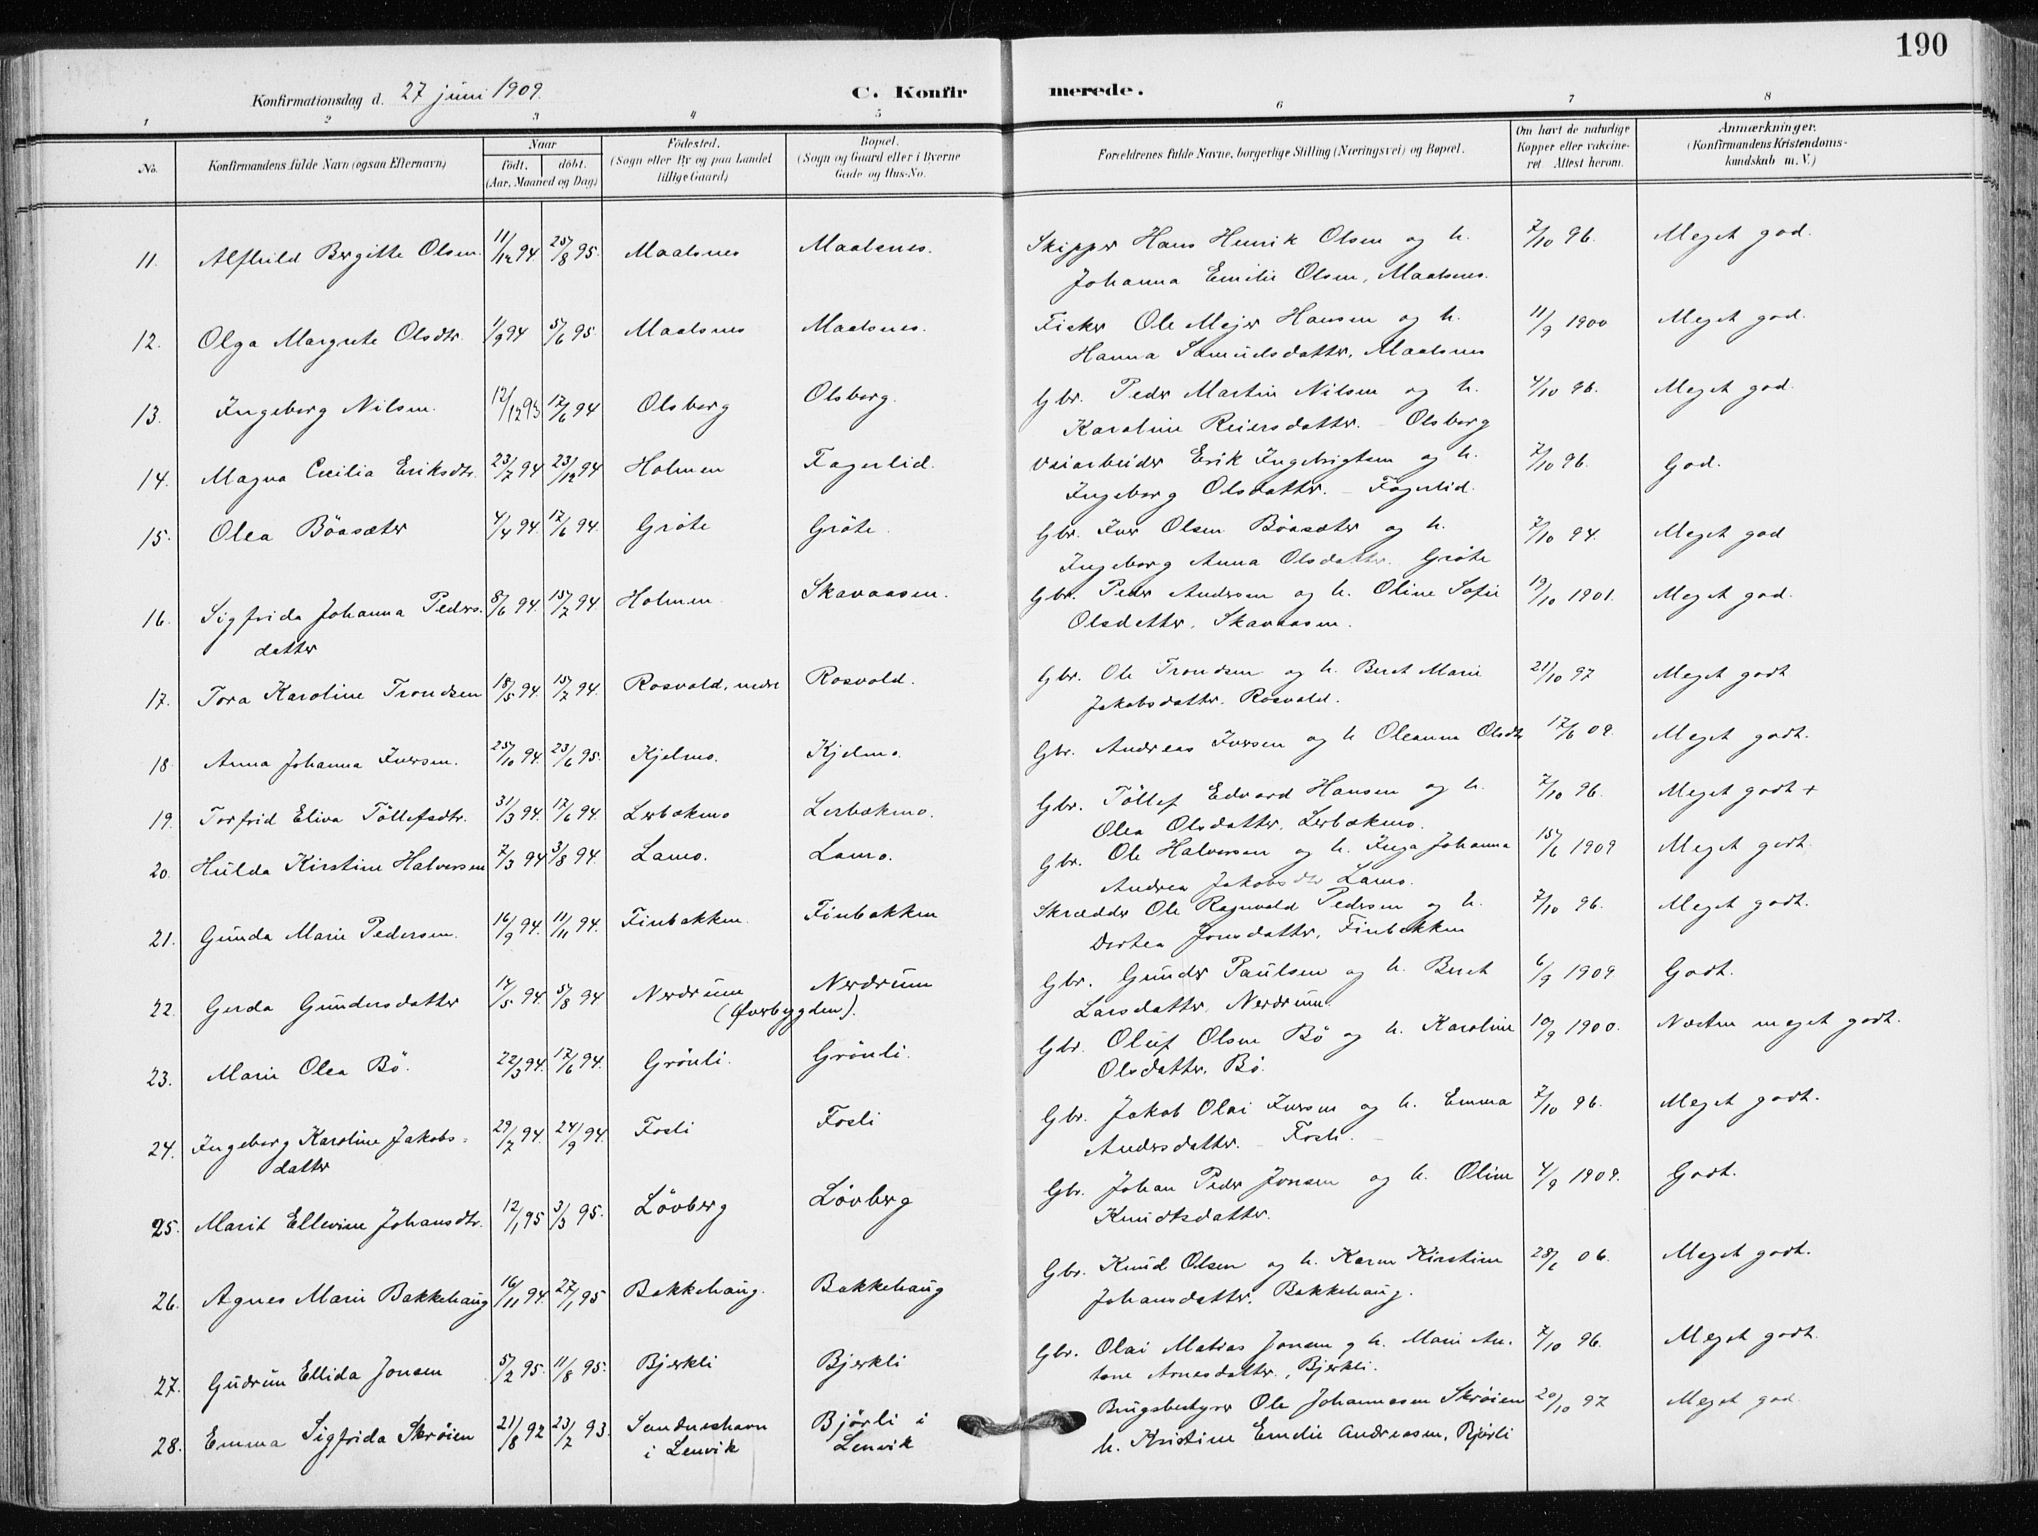 190
Konfirmationsdag d. 27 juni 1909.
C. Konfirmerede.
1 2 3 4 5 6 7 8
No. Konfirmandens fulde Navn (ogsaa Efternavn) Naar født. døbt. (Aar, Maaned og Dag) Fødested. (Sogn eller By og paa Landet tillige Gaard) Bopæl. (Sogn og Gaard eller i Byerne Gade og Hus-No. Forældrenes fulde Navne, borgerlige Stilling (Næringsvei) og Bopæl. Om havt de naturlige Kopper eller vakcineret Attest herom. Anmærkninger. (Konfirmandens Kristendomskundskab m. V.)
11. Alfhild Bergitte Olsen. 11/12 94 25/8 95. Maalsnes Maalsnes. Skipper Hans Henrik Olsen og h. 7/10 96. Meget god.
Johanna Emilie Olsen, Maalsnes.
12. Olga Margrete Olsdtr. 1/9 94 5/6 95. Maalsnes Maalsnes. Fisker Ole Mejer Hansen og h. 11/9 1900 Meget god.
Hanna Samuelsdatter, Maalsnes
13. Ingeborg Nilsen. 12/12 93 17/6 94 Olsborg Olsborg. Gbr. Peder Martin Nilsen og h. 4/10 96. Meget god.
Karoline Reiersdatter. – Olsborg
14. Magna Cecilia Eriksdtr. 23/7 94 23/12 94 Holmen Fagerlid. Veiarbeider Erik Ingebrigtsen og h. 7/10 96. God.
Ingeborg Olsdatter. – Fagerlid.
15. Olea Bönsæter 4/4 94. 17/6 94. Gröte Gröte. Gbr. Iver Olsen Bönsæter og h. 7/10 94. Meget god
Ingeborg Anna Olsdatter. Gröte
16. Sigfrida Johanna Peders- 8/6 94. 15/7 94 Holmen Skavaasen. Gbr. Peder Andersen og h. Oline Sofie 19/10 1901. Meget god.
datter Olsdatter, Skavaasen.
17. Tora Karoline Trondsen 18/5 94. 15/7 94. Rosvold, nedre Rosvold. Gbr. Ole Trondsen og h. Beret Marie 21/10 97 Meget godt
Jakobsdatter. Rosvold.
18. Anna Johanna Iversen. 25/10 94. 23/6 95. Kjelmo. Kjelmo. Gbr. Andreas Iversen og h Oleanna Olsdtr 17/6 09. Meget godt.
19. Torfrid Eliva Töllefsdtr. 31/3 94. 17/6 94. Lerbækmo Lerbækmo. Gbr. Töllef Edvard Hansen og h. 7/10 96. Meget godt +
Olea Olsdatter, Lerbækmo.
20. Hulda Kirstine Halvorsen 7/3 94 3/8 94. Lamo. Lamo. Gbr. Ole Halvorsen og h. Inga Johanna 15/6 1909 Meget godt.
Andrea Jakobsdtr Lamo.
21. Gunda Marie Pedersen. 16/9 94. 11/11 94. Finbakken. Finbakken Skrædder Ole Ragnvald Pedersen og h. 7/10 96. Meget godt.
Dortea Jonsdatter, Finbakken
22. Gerda Gundersdatter 14/5 94. 5/8 94 Nerdrum Nerdrum Gbr. Gunder Paulsen og h. Beret 6/9 1909 Godt.
(Øverbygden). Larsdatter, Nerdrum.
23. Marie Olea Bö. 22/3 94. 17/6 94. Grönli. Grönli. Gbr. Oluf Olsen Bö og h. Karoline 10/9 1900. Næsten meget godt.
Olsdatter, Bö.
24. Ingeborg Karoline Jakobs- 29/7 94. 24/9 94. Fosli Fosli Gbr. Jakob Olai Iversen og h. Emma 7/10 96. Meget godt.
datter Andersdatter. – Fosli. –
25. Marit Ellevine Johansdtr. 12/1 95 3/3 95. Lövberg Lövberg Gbr. Johan Peder Jonsen og h. Oline 4/9 1909. Godt.
Knudtsdatter.
26. Agnes Marie Bakkehaug 16/11 94. 27/1 95 Bakkehaug. Bakkehaug Gbr. Knud Olsen og h. Karen Kirstine 28/6 06. Meget godt.
Johansdatter, Bakkehaug.
27. Gudrun Ellida Jonsen 5/2 95. 11/8 95. Bjerkli Bjerkli Gbr. Olai Matias Jonsen g h. Marie An- 7/10 96. Meget godt.
tone Arnesdatter, Bjerkli.
28. Emma Sigfrida Skröien 21/8 92 23/7 93. Sandneshavn Bjørli i Brugsbestyrer Ole Johannesen Skröien 20/10 97 Meget god
i Lenvik Lenvik h. Kristine Emelie Andreasen, Bjørli